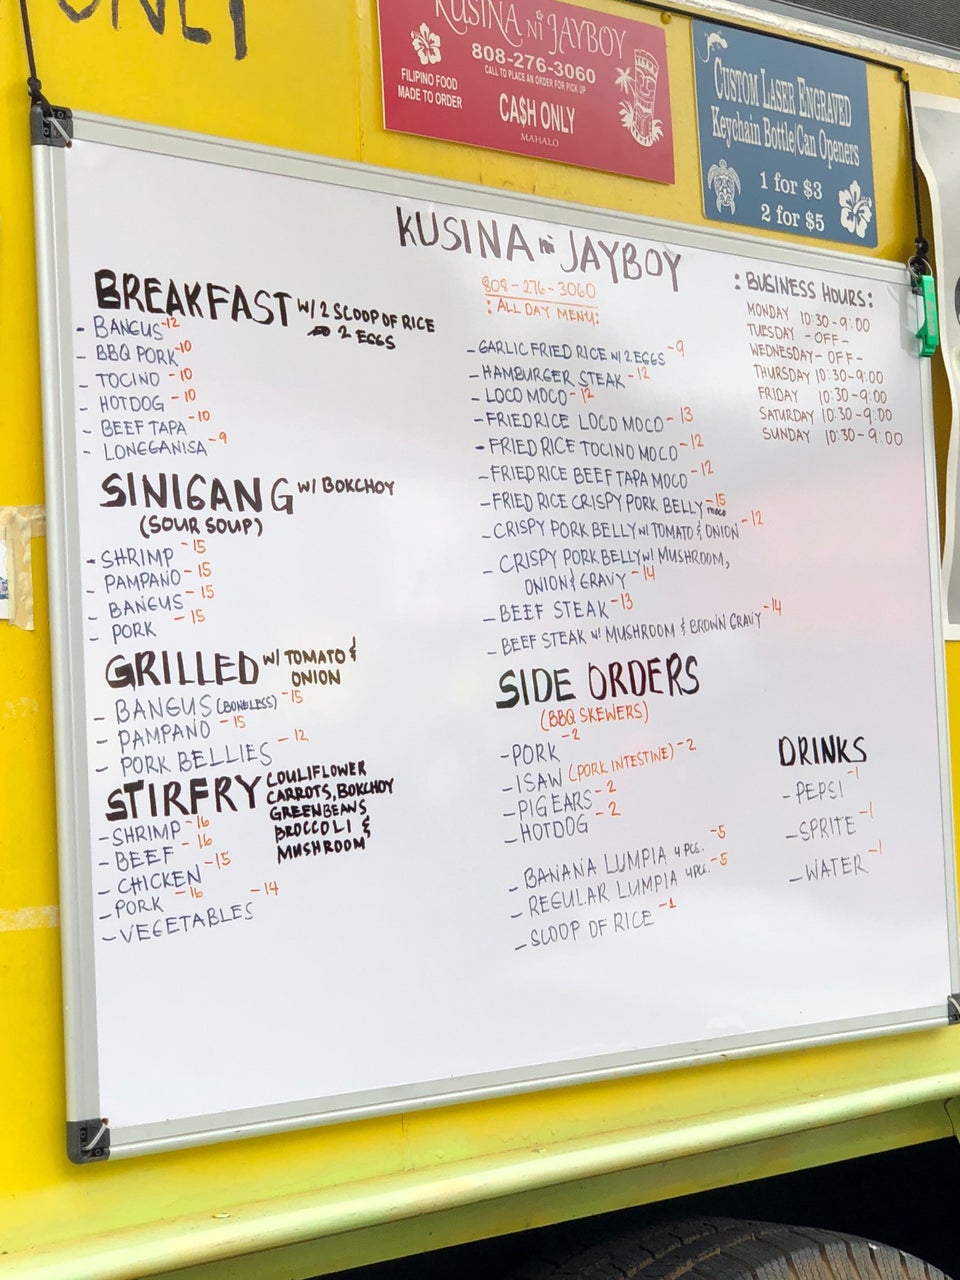 ONLY
KUSINA NI JAYBOY
808-276-3060
CALL TO PLACE AN ORDER FOR PICK UP
FILIPINO FOOD
MADE TO ORDER
CA$H ONLY
MAHALO
CUSTOM LASER ENGRAVED
Keychain Bottle/Can Openers
1 for $3
2 for $5
KUSINA ni JAYBOY
808-276-3060
BREAKFAST W/ 2 SCOOP OF RICE
2 EGGS
- BANGUS -12
- BBQ PORK -10
- TOCINO -10
- HOTDOG -10
- BEEF TAPA -10
- LONGGANISA -9
SINIGANG W/ BOKCHOY
(SOUR SOUP)
- SHRIMP -15
- PAMPANO -15
- BANGUS -15
- PORK -15
GRILLED W/ TOMATO &
ONION
- BANGUS (BONELESS) -15
- PAMPANO -15
- PORK BELLIES -12
STIRFRY COULIFLOWER
CARROTS, BOKCHOY
GREENBEANS
BROCCOLI &
MUSHROOM
- SHRIMP -16
- BEEF -16
- CHICKEN -15
- PORK -16
- VEGETABLES -14
: ALL DAY MENU:
- GARLIC FRIED RICE W/ 2 EGGS -9
- HAMBURGER STEAK -12
- LOCO MOCO -12
- FRIED RICE LOCO MOCO -13
- FRIED RICE TOCINO MOCO -12
- FRIED RICE BEEF TAPA MOCO -12
- FRIED RICE CRISPY PORK BELLY MOCO -15
- CRISPY PORK BELLY W/ TOMATO & ONION -12
- CRISPY PORK BELLY W/ MUSHROOM,
ONION & GRAVY -14
- BEEF STEAK -13
- BEEF STEAK W/ MUSHROOM & BROWN GRAVY -14
SIDE ORDERS
(BBQ SKEWERS)
- PORK -2
- ISAW (PORK INTESTINE) -2
- PIG EARS -2
- HOTDOG -2
- BANANA LUMPIA 4 PCS. -5
- REGULAR LUMPIA 4 PC. -5
- SCOOP OF RICE -1
: BUSINESS HOURS:
MONDAY 10:30-9:00
TUESDAY -OFF-
WEDNESDAY -OFF-
THURSDAY 10:30-9:00
FRIDAY 10:30-9:00
SATURDAY 10:30-9:00
SUNDAY 10:30-9:00
DRINKS
- PEPSI -1
- SPRITE -1
- WATER -1